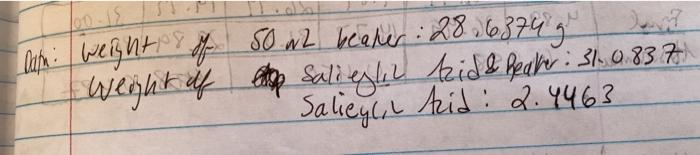 Data: weight of 50 mL beaker: 28.6374 g
weight of Salicylic Acid & Beaker: 31.0837
Salicylic Acid: 2.4463